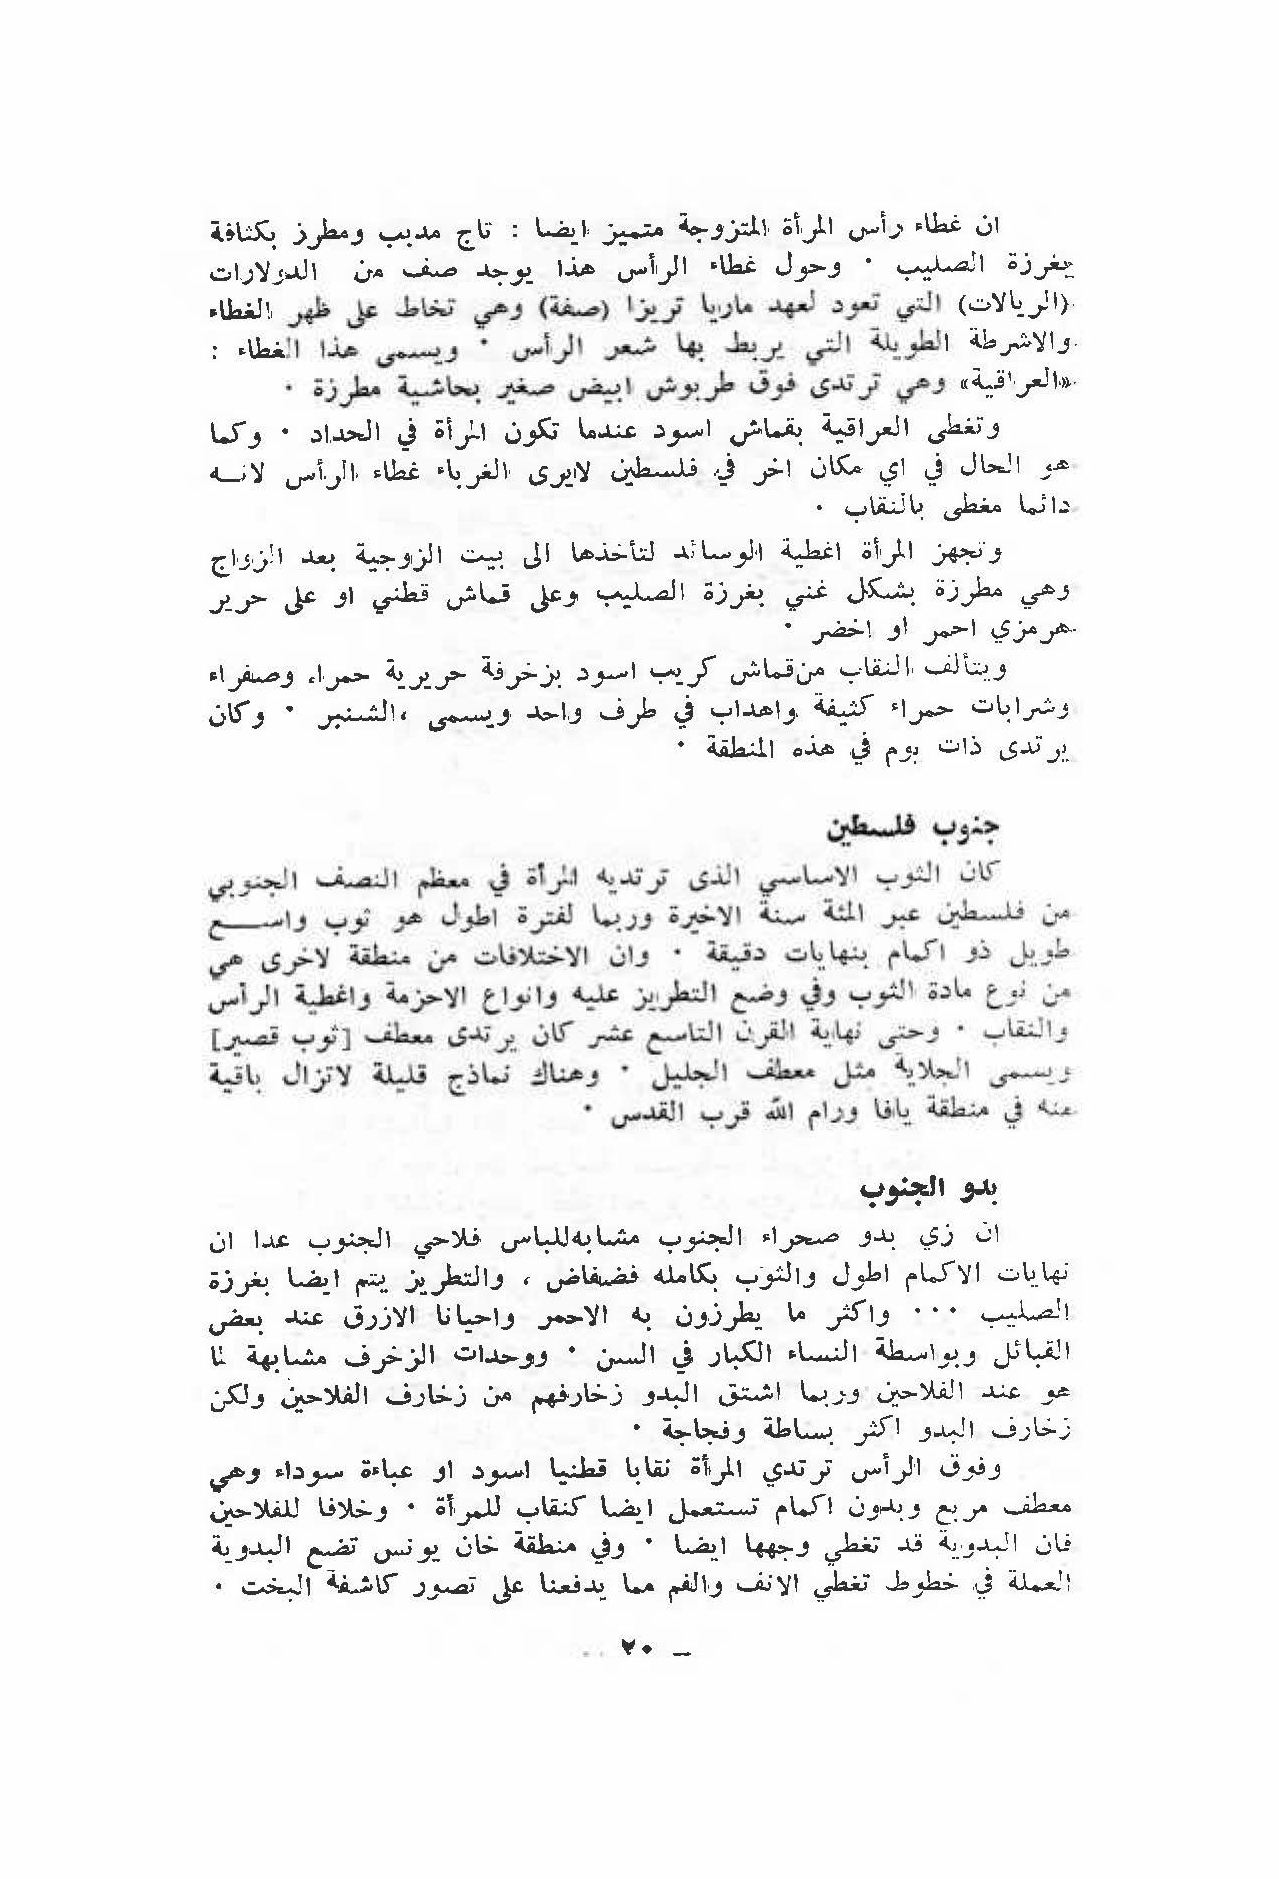 ان غطاء رأس المرأة المتزوجة متميز ايضا : تاج مدبب ومطرز بكثافة
بغرزة الصليب ٠ وحول غطاء الرأس هذا يوجد صف من الدولارات
(الريالات) التي تعود لعهد ماريا تريزا (صفة) وهي تخاط على ظهر الغطاء
والاشرطة الطويلة التي يربط بها شعر الرأس ٠ ويسمى هذا الغطاء :
«العراقية» وهي ترتدى فوق طربوش ابيض صغير بحاشية مطرزة ٠
وتغطى العراقية بقماش اسود عندما تكون المرأة في الحداد ٠ وكما
هو الحال في اي مكان اخر في فلسطين لايرى الغرباء غطاء الرأس لانـه
دائما مغطى بالنقاب ٠
وتجهز المرأة اغطية الوسائد لتأخذها الى بيت الزوجية بعد الزواج
وهي مطرزة بشكل غني بغرزة الصليب وعلى قماش قطني او على حرير
هرمزي احمر او اخضر ٠
ويتألف النقاب من قماش كريب اسود بزخرفة حريرية حمراء وصفراء
وشرابات حمراء كثيفة واهداب في طرف واحد ويسمى ،الشنبر ٠ وكان
يرتدى ذات يوم في هذه المنطقة ٠
جنوب فلسطين
كان الثوب الاساسي الذى ترتديه المرأة في معظم النصف الجنوبي
من فلسطين عبر المئة سنة الاخيرة وربما لفترة اطول هو ثوب واســـع
طويل ذو اكمام بنهايات دقيقة ٠ وان الاختلافات من منطقة لاخرى هي
من نوع مادة الثوب وفي وضع التطريز عليه وانواع الاحزمة واغطية الرأس
والنقاب ٠ وحتى نهاية القرن التاسع عشر كان يرتدى معطف [ثوب قصير]
ويسمى الجلاية مثل معطف الجليل ٠ وهناك نماذج قليلة لاتزال باقية
منه في منطقة يافا ورام الله قرب القدس ٠
بدو الجنوب
ان زي بدو صحراء الجنوب مشابه للباس فلاحي الجنوب عدا ان
نهايات الاكمام اطول والثوب بكامله فضفاض ، والتطريز يتم ايضا بغرزة
الصليب ٠٠٠ واكثر ما يطرزون به الاحمر واحيانا الازرق عند بعض
القبائل وبواسطة النساء الكبار في السن ٠ ووحدات الزخرف مشابهة لما
هو عند الفلاحين وربما اشتق البدو زخارفهم من زخارف الفلاحين ولكن
زخارف البدو اكثر بساطة وفجاجة ٠
وفوق الرأس ترتدي المرأة نقابا قطنيا اسود او عباءة سوداء وهي
معطف مربع وبدون اكمام تستعمل ايضا كنقاب للمرأة ٠ وخلافا للفلاحين
فان البدوية قد تغطي وجهها ايضا ٠ وفي منطقة خان يونس تضع البدوية
العملة في خطوط تغطي الانف والفم مما يدفعنا على تصور كاشفة البخت ٠
ـ ٢٠